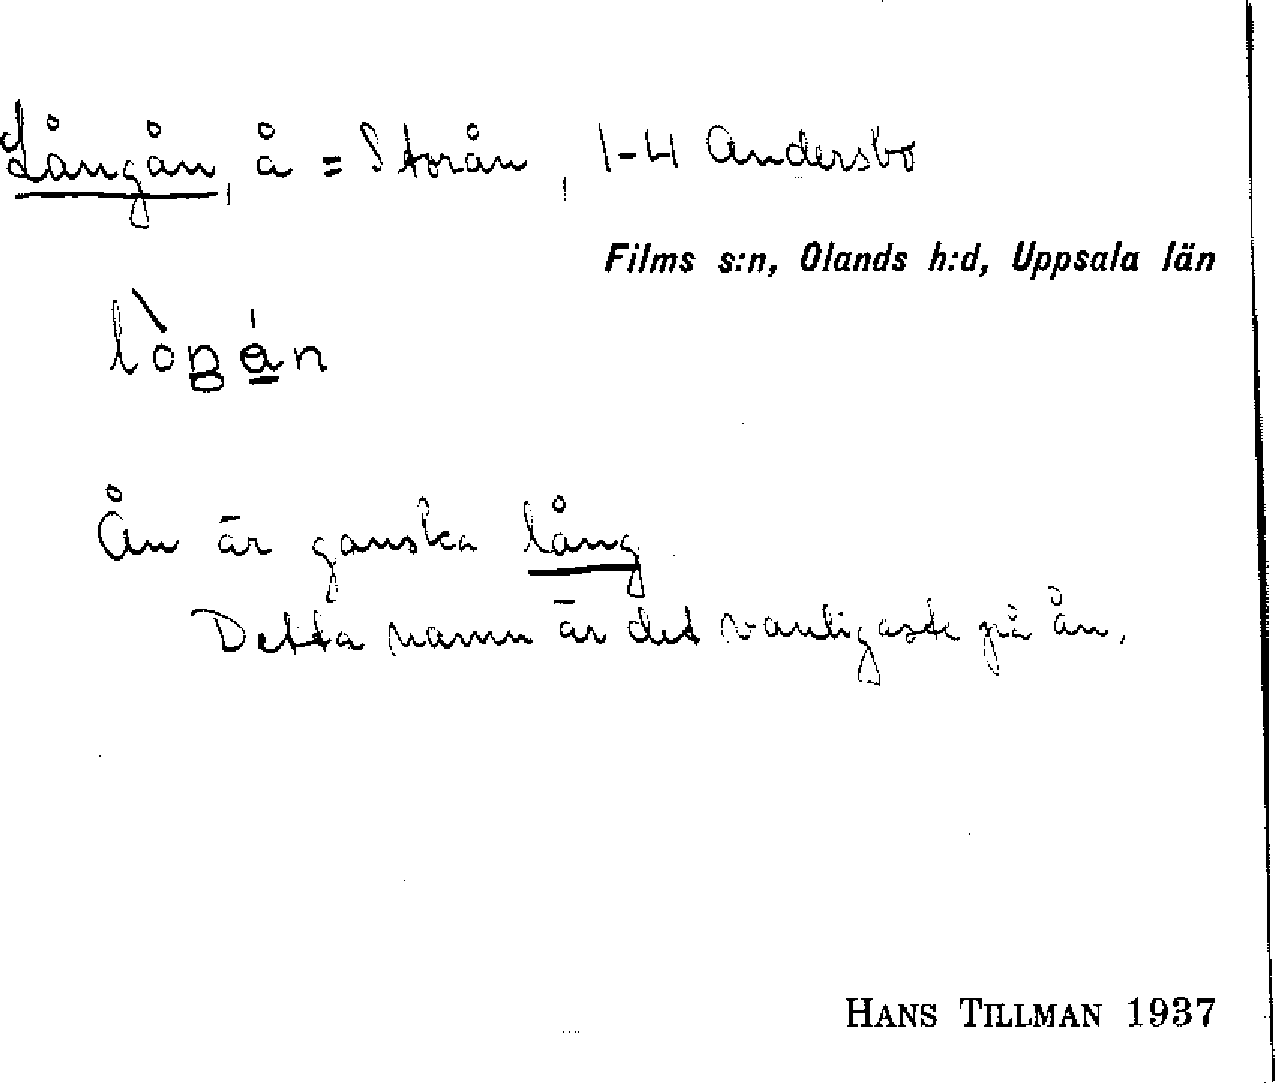 Långån, å = Storån, 1-4 Andersbo
Films s:n, Olands h:d, Uppsala län
Ån är ganska lång.
Detta namn är det vanligaste på ån.
HANS TILLMAN 1937